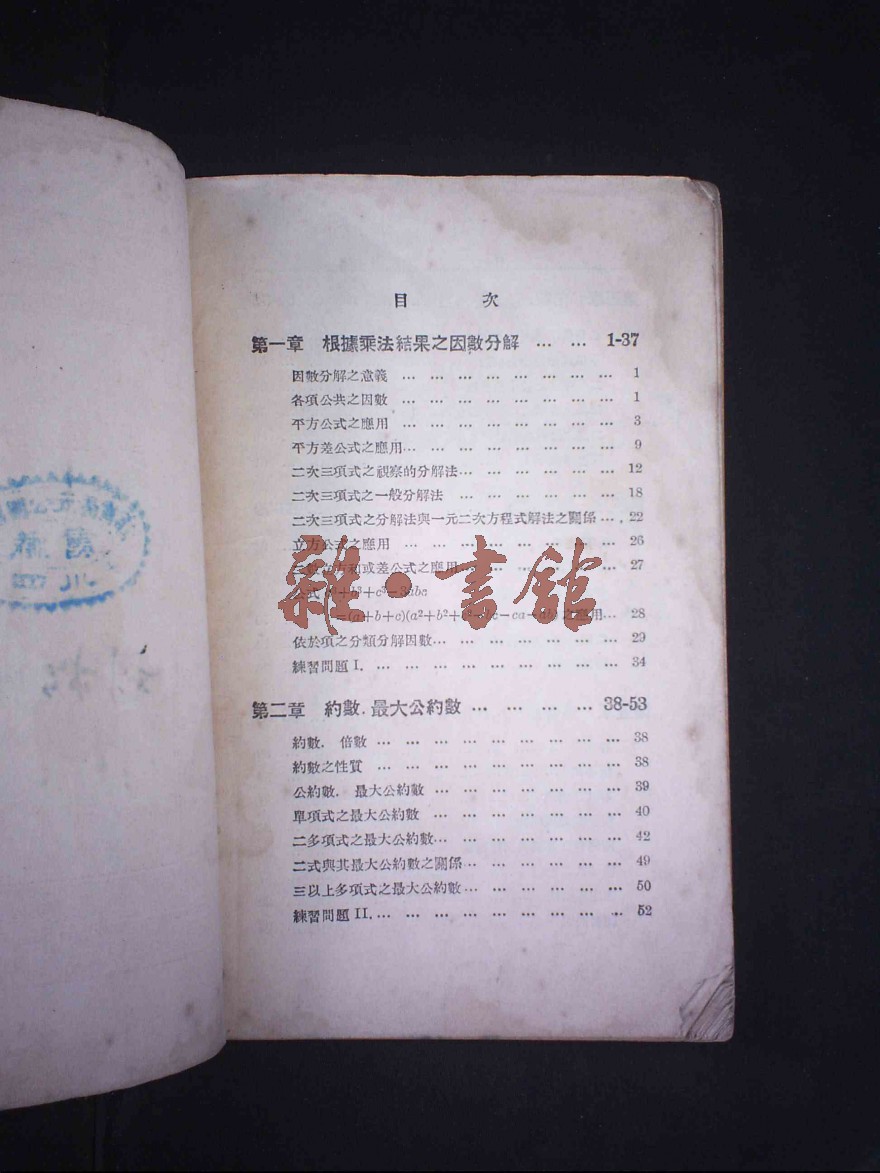 目 次
第一章 根據乘法結果之因數分解 … … 1-37
因數分解之意義 … … … … … … … … … 1
各項公共之因數 … … … … … … … … … 1
平方公式之應用 … … … … … … … … … 3
平方差公式之應用… … … … … … … … … 9
二次三項式之視察的分解法… … … … … … … 12
二次三項式之一般分解法 … … … … … … … 18
二次三項式之分解法與一元二次方程式解法之關係 … … 22
立方公式之應用 … … … … … … … … … 26
方和或差公式之應用 … … … … … … 27
公式 +b³+c³−3abc
=(a+b+c)(a²+b²+c²−bc−ca−ab) 之應用… 28
依於項之分類分解因數… … … … … … … … 29
練習問題 I. … … … … … … … … … … 34
第二章 約數．最大公約數 … … … … … 38-53
約數． 倍數 … … … … … … … … … … 38
約數之性質 … … … … … … … … … … 38
公約數． 最大公約數 … … … … … … … … 39
單項式之最大公約數 … … … … … … … … 40
二多項式之最大公約數… … … … … … … … 42
二式與其最大公約數之關係… … … … … … … 49
三以上多項式之最大公約數… … … … … … … 50
練習問題 II. … … … … … … … … … … 52
雜·書館